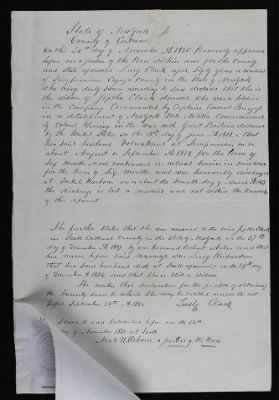 State of New York
County of Cortland
On this 26th day of November A.D. 1850 Personally appeared
before me a justice of the Peace within and for the County
and State aforesaid Lucy Clark aged Sixty years a resident
of Sempronius Cayuga County in the State of New York
who being duly sworn according to law declares that she is
the widow of Jeptha Clark deceased who was a Soldier
in the Company Commanded by Captain
in a detachment of New York State Militia Commanded
by Colonel Fleming in the war with Great Britain declared
by the United States on the 18th day of June A.D. 1812. that
her said husband Volunteered at Sempronius on or
about August or September A.D. 1812 for the term of
Six Months and continued in actual Service in said war
for the term of Six Months and was honorably discharged
at Sackets Harbour on or about the month day of March A.D. 1813
the discharge is lost or mislaid and not within the Knowledge
of this deponent
She further States that she was married to the said Jeptha Clark
in Scott Cortland County in the State of New York on the 27th
day of December A.D. 1809 by one
her name before said marriage was Lucy Richardson
that her said husband died at Scott aforesaid on the 29th day
of December A.D. 1838 and that she is still a Widow
She makes this declaration for the purpose of obtaining
the bounty land to which she may be entitled under the act
passed September 28th A.D. 1850
Lucy Clark
Sworn to and Subscribed before me the 26th
day of November 1850 at Scott
a justice of the Peace